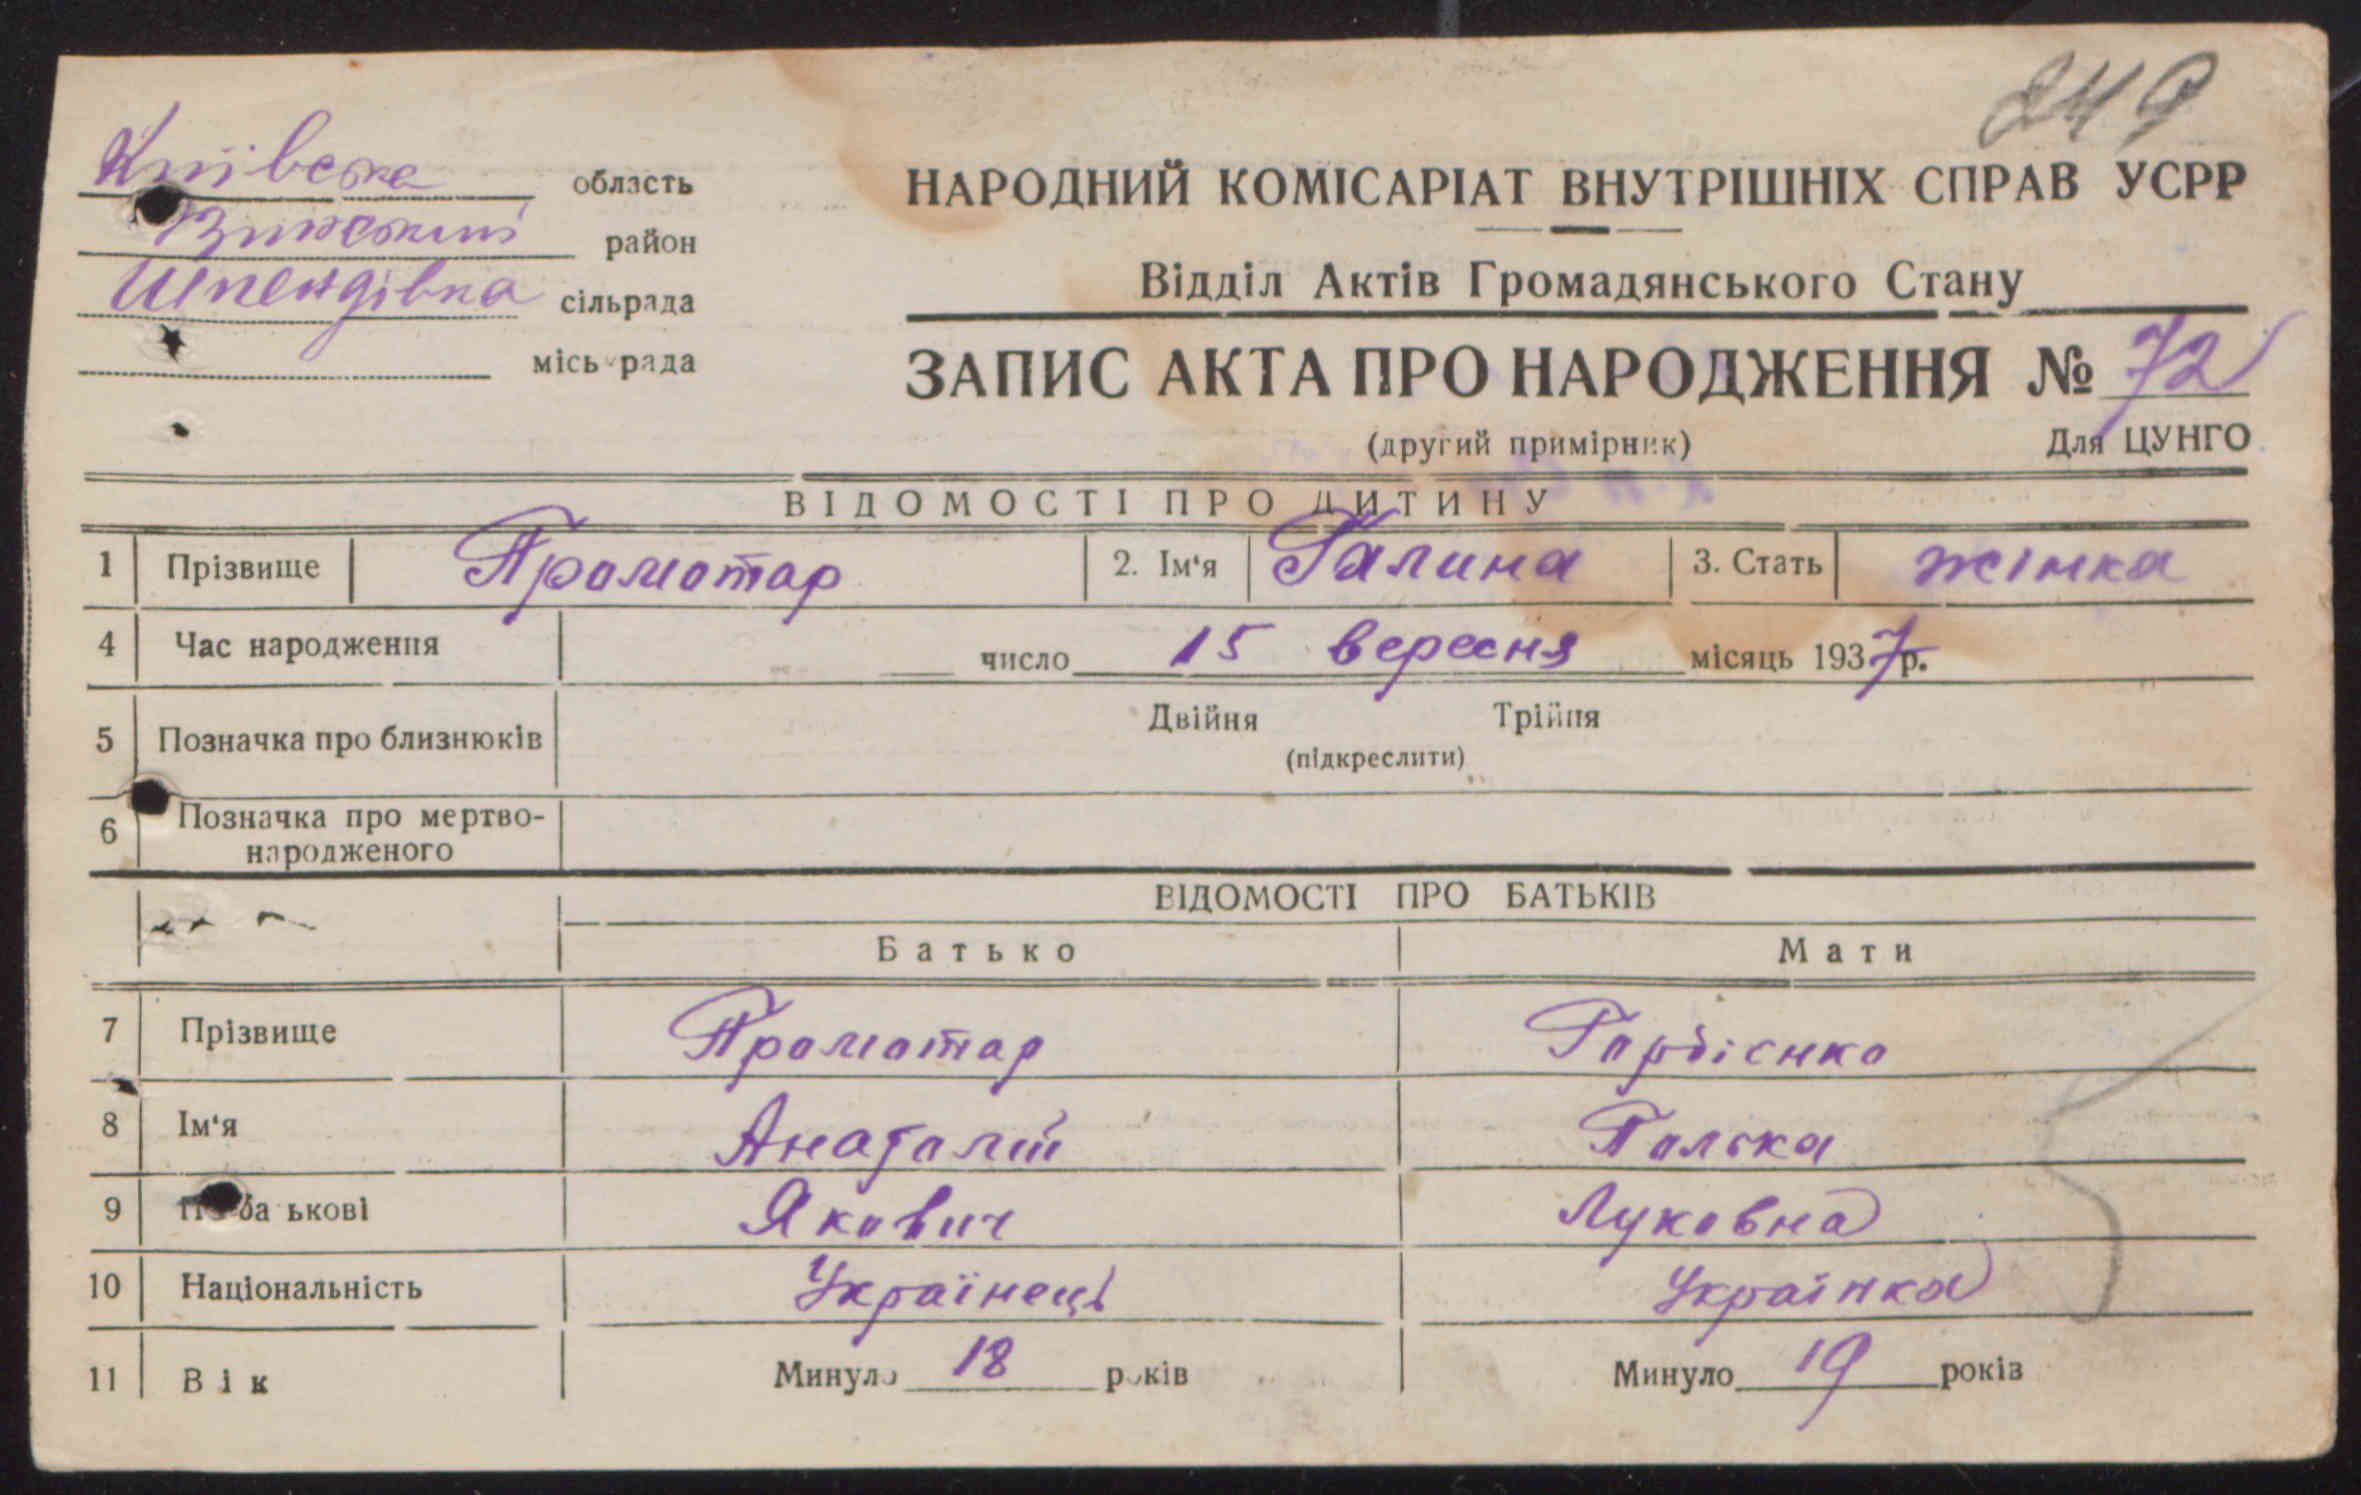 249
Київська область
район
Шпендівка сільрада
міськрада
НАРОДНИЙ КОМІСАРІАТ ВНУТРІШНІХ СПРАВ УСРР
Відділ Актів Громадянського Стану
ЗАПИС АКТА ПРО НАРОДЖЕННЯ № 72
(другий примірник) Для ЦУНГО
ВІДОМОСТІ ПРО ДИТИНУ
1 Прізвище Промотар 2. Ім'я Галина 3. Стать жінка
4 Час народження число 15 вересня місяць 1937 р.
5 Позначка про близнюків Двійня Трійня
(підкреслити)
6 Позначка про мертво-
народженого
ВІДОМОСТІ ПРО БАТЬКІВ
Батько Мати
7 Прізвище Промотар Гордієнко
8 Ім'я Анатолій Палажка
9 По батькові Якович Луковна
10 Національність Українець Українка
11 Вік Минуло 18 років Минуло 19 років